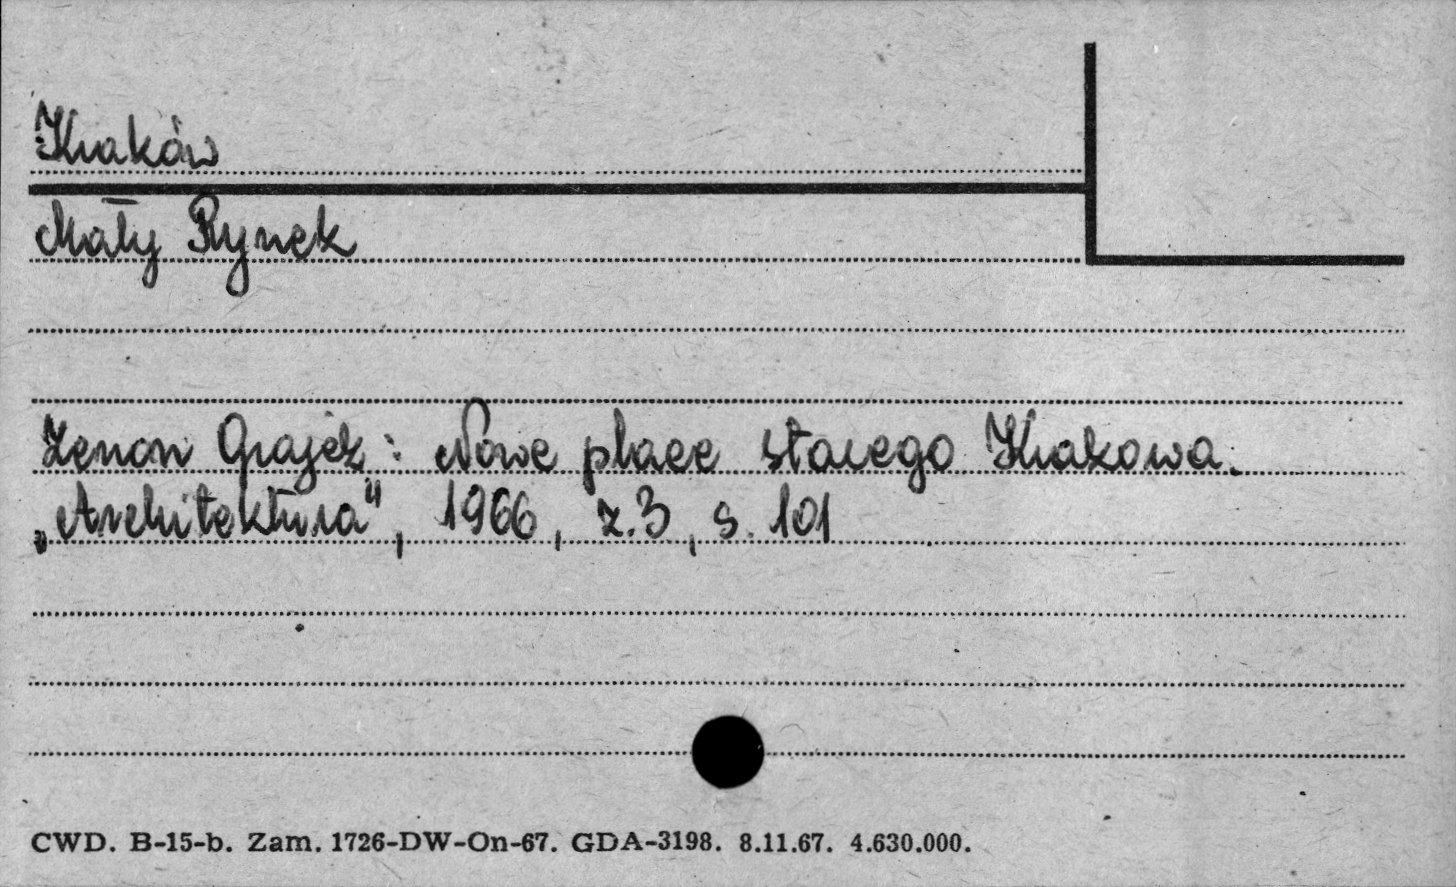 Kraków
Mały Rynek
Zenon Grajek: Nowe place starego Krakowa.
„Architektura", 1966, z.3, s. 101
CWD. B-15-b. Zam. 1726-DW-On-67. GDA-3198. 8.11.67. 4.630.000.